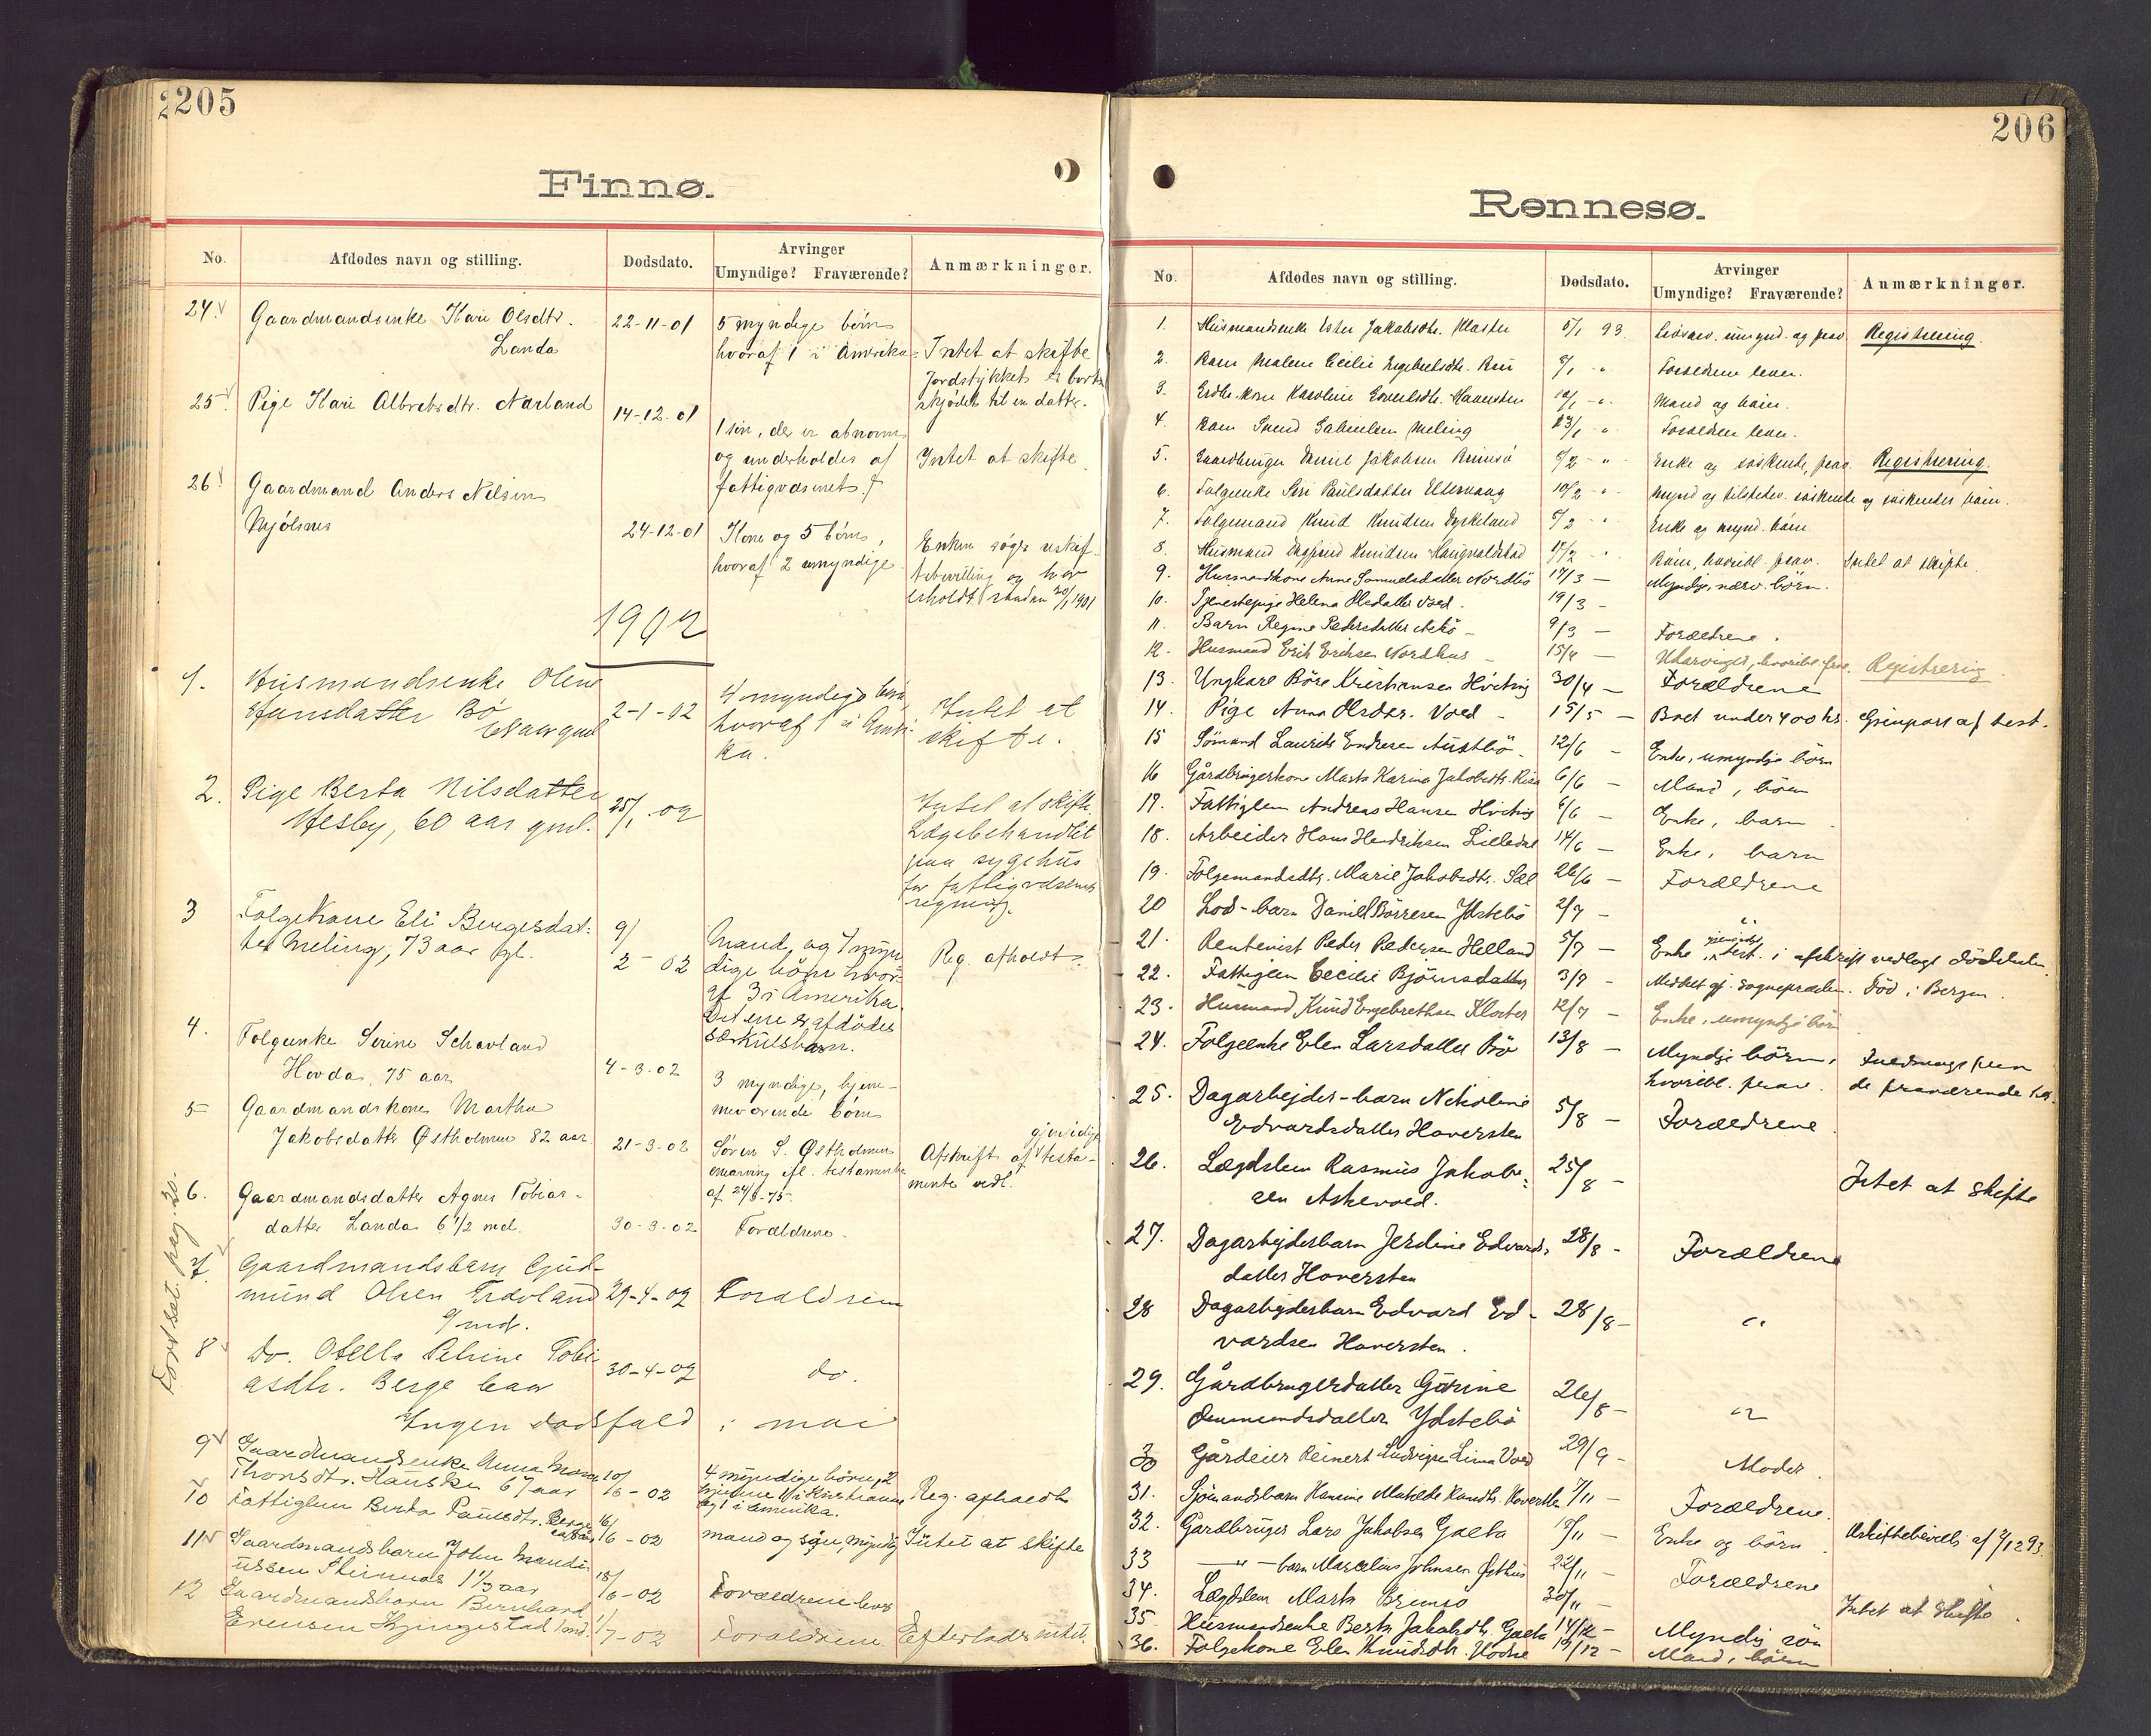 205
Finnø.
No.
Afdødes navn og stilling.
Dødsdato.
Arvinger
Umyndige? Fraværende?
Anmærkninger.
24. Gaardmandsenke Kari Olsdtr. 22-11-01 5 myndige børn
Landa hvoraf 1 i Amerika Intet at skifte
Jordstykket er bort-
skjødet til en datter.
25. Pige Kari Albretsdtr. Nærland 14-12-01
1 søn, der er abnorm
og underholdes af Intet at skifte
fattigvæsenet.
26. Gaardmand Anders Nilsen
Mjølsnes 24-12-01 Kone og 5 børn,
hvoraf 2 umyndige
Enken søger uskif-
tebevilling og har
erholdt
1902
1. Husmandsenke Olene
Hansdatter Bø 2-1-02 4 myndige børn
hvoraf 1 i Ameri-
ka.
Intet at
skifte.
2. Pige Berta Nilsdatter
Hesby, 60 aar gml. 25/1-02
Intet at skifte
Lægebehandlet
paa sygehus
for fattigvæsenets
regning.
3 Folgekone Eli Børgesdat-
ter Meling, 73 aar gl. 9/2-02
Mand, og 7 myn-
dige børn hvor-
af 3 i Amerika.
Det ene er afdødes
særkulsbarn.
Reg. afholdt.
4. Folgeenke Serine Schavland
Hovda, 75 aar 4-3-02
3 myndige, hjem-
meværende børn
5 Gaardmandskone Martha
Jakobsdatter Østholmen 82 aar. 21-3-02
Søren S. Østholmen
enearving efl. testamente
af 24/8-75
gjensidigt
Afskrift af testa-
mente vedl.
6. Gaardmandsdatter Agnes Tobias-
datter Landa 6 1/2 md. 30-3-02 Forældrene.
Fortsat. pag. 20.
7. Gaardmandsbarn Gud-
mund Olsen 29-4-02 Forældrene
8 Do. Otella Petrine Tobi-
asdtr. Berge 30-4-02 do.
Ingen dødsfald i mai
9 Gaardmandsenke Anna
Thorsdtr. Hauske 67 aar 10/6-02
4 myndige børn, 2
hjemme, 1 i Kristiania
og 1 i Amerika.
Reg. afholdt
10 Fattiglem Berta Paulsdtr. Berge 16/6-02 mand og søn, myndig Intet at skifte
11 Gaardmandsbarn John
1 1/3 aar 18/6-02 Forældrene lever
12 Gaardmandsbarn Bernhard
Evensen 1/7-02 Forældrene. Efterlader intet.
206
Rennesø.
No.
Afdødes navn og stilling.
Dødsdato.
Arvinger
Umyndige? Fraværende?
Anmærkninger.
1. Husmandsenke Ester Jakobsdtr. Kloster 5/1 93. Registrering.
2. Barn Malene Cecilie Engebretsdtr. Forældrene lever.
3. Karoline Mand og børn.
4. Barn Svend Gabrielsen Meling 23/1 " Forældrene lever.
5. Gaardbruger Daniel Jakobsen 6/2 " Enke og søskende, frav. Registrering.
6. Folgeenke Siri Paulsdatter Eltervaag 10/2 " søskende og søskendes børn.
7. Folgemand Knud Knudsen Dyskeland 6/2 " Enke og mynd. børn.
8. Husmand Knudsen 15/2 " Børn, hvoribl. frav. Intet at skifte.
9. Husmandskone Anne Samuelsdatter Nordbø 17/3 — Myndige, nærv. børn.
10. Tjenestepige Helena Olsdatter Voed. 19/3 —
11. Barn Regine Pedersdatter Askø 9/3 — Forældrene.
12. Husmand Erik Eriksen Nordhus 15/4 — Utarvinger, hvoribl. frav. Registrering.
13. Ungkarl Børe Kristiansen Hviting 30/4 — Forældrene
14. Pige Anna Olsdtr. Voed 15/5 — Boet under 400 kr. Gjenpart af test.
15 Sømand Laurits Endresen Austbø. 12/6 — Enke, umyndige børn
16 Gårdbrugerkone Marta Karina Jakobsdtr. 6/6 — Mand, børn
17. Fattiglem Andreas Hansen Hviting 6/6 — Enke, barn
18. Arbeider Hans Hendriksen Lilledal 14/6 — Enke, barn
19. Folgemandsdtr. Marie Jakobsdtr. Sæl 26/6 — Forældrene
20 Lods-barn Daniel Børresen Ydstebø 2/7 — "
21. Rentenist Peder Pedersen Helland 5/7 — Enke, gjensidigt test. i afskrift vedlagt dødslisten.
22. Fattiglem Cecilie Bjørnsdatter 3/7 — Meddelt af sognepræsten. Død i Bergen.
23. Husmand Knud Engebrethsen Kloster 12/7 — Enke, umyndige børn
24. Folgeenke Elen Larsdatter Bø 13/8 — Myndige børn,
hvoribl. frav. Fuldmagt fra
de fraværende
25. Dagarbejder-barn Nikoline
Edvardsdatter Haversten 5/8 — Forældrene
26. Lægdslem Rasmus Jakob-
sen Askevold. 25/8 — Intet at skifte
27. Dagarbejderbarn Jerdine Edvards-
datter Haversten 28/8 - Forældrene
28 Dagarbejderbarn Edvard Ed-
vardsen Haversten. 28/8 - "
29. Gårdbrugerdatter Gurine
Ommundsdatter Ydstebø 26/8 - "
30 Gårdeier Reinert Ludvigsen Lima Voed 29/9 - Moder.
31. Sjømandsbarn Hansine Matilde 7/11 — Forældrene.
32. Gardbruger Lars Jakobsen Gaeta 18/11 — Enke og børn. Uskiftebevill. af
33 — " — barn Marcelius Johnsen Østhus 22/11 — Forældrene
34. Lægdslem Marta Brimsø 30/11 — Intet at skifte.
35. Husmandsenke Berta Jakobsdtr. Gaeta 14/12 - Myndig søn
36. Folgekone Elen Knudsdtr. Hodne 19/12 - Mand, børn